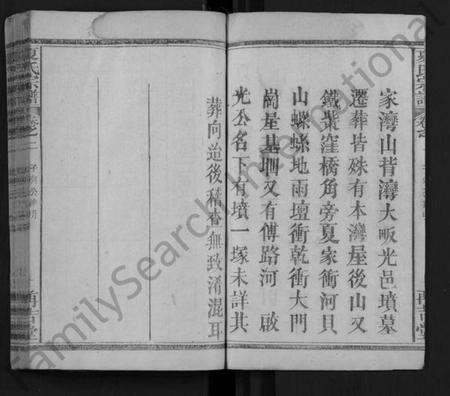 家灣山背灣大畈光邑墳墓
遷葬皆殊有本灣屋後山又
鐵業窪橋角旁夏家衝河貝
山螺螄地雨壇衝乾衝大門
崗屋基圳又有傅路河 啟
光公名下有墳一塚未詳其
葬向迨後稽查無致淆混耳
夏氏宗譜 卷之二
FamilySearch International